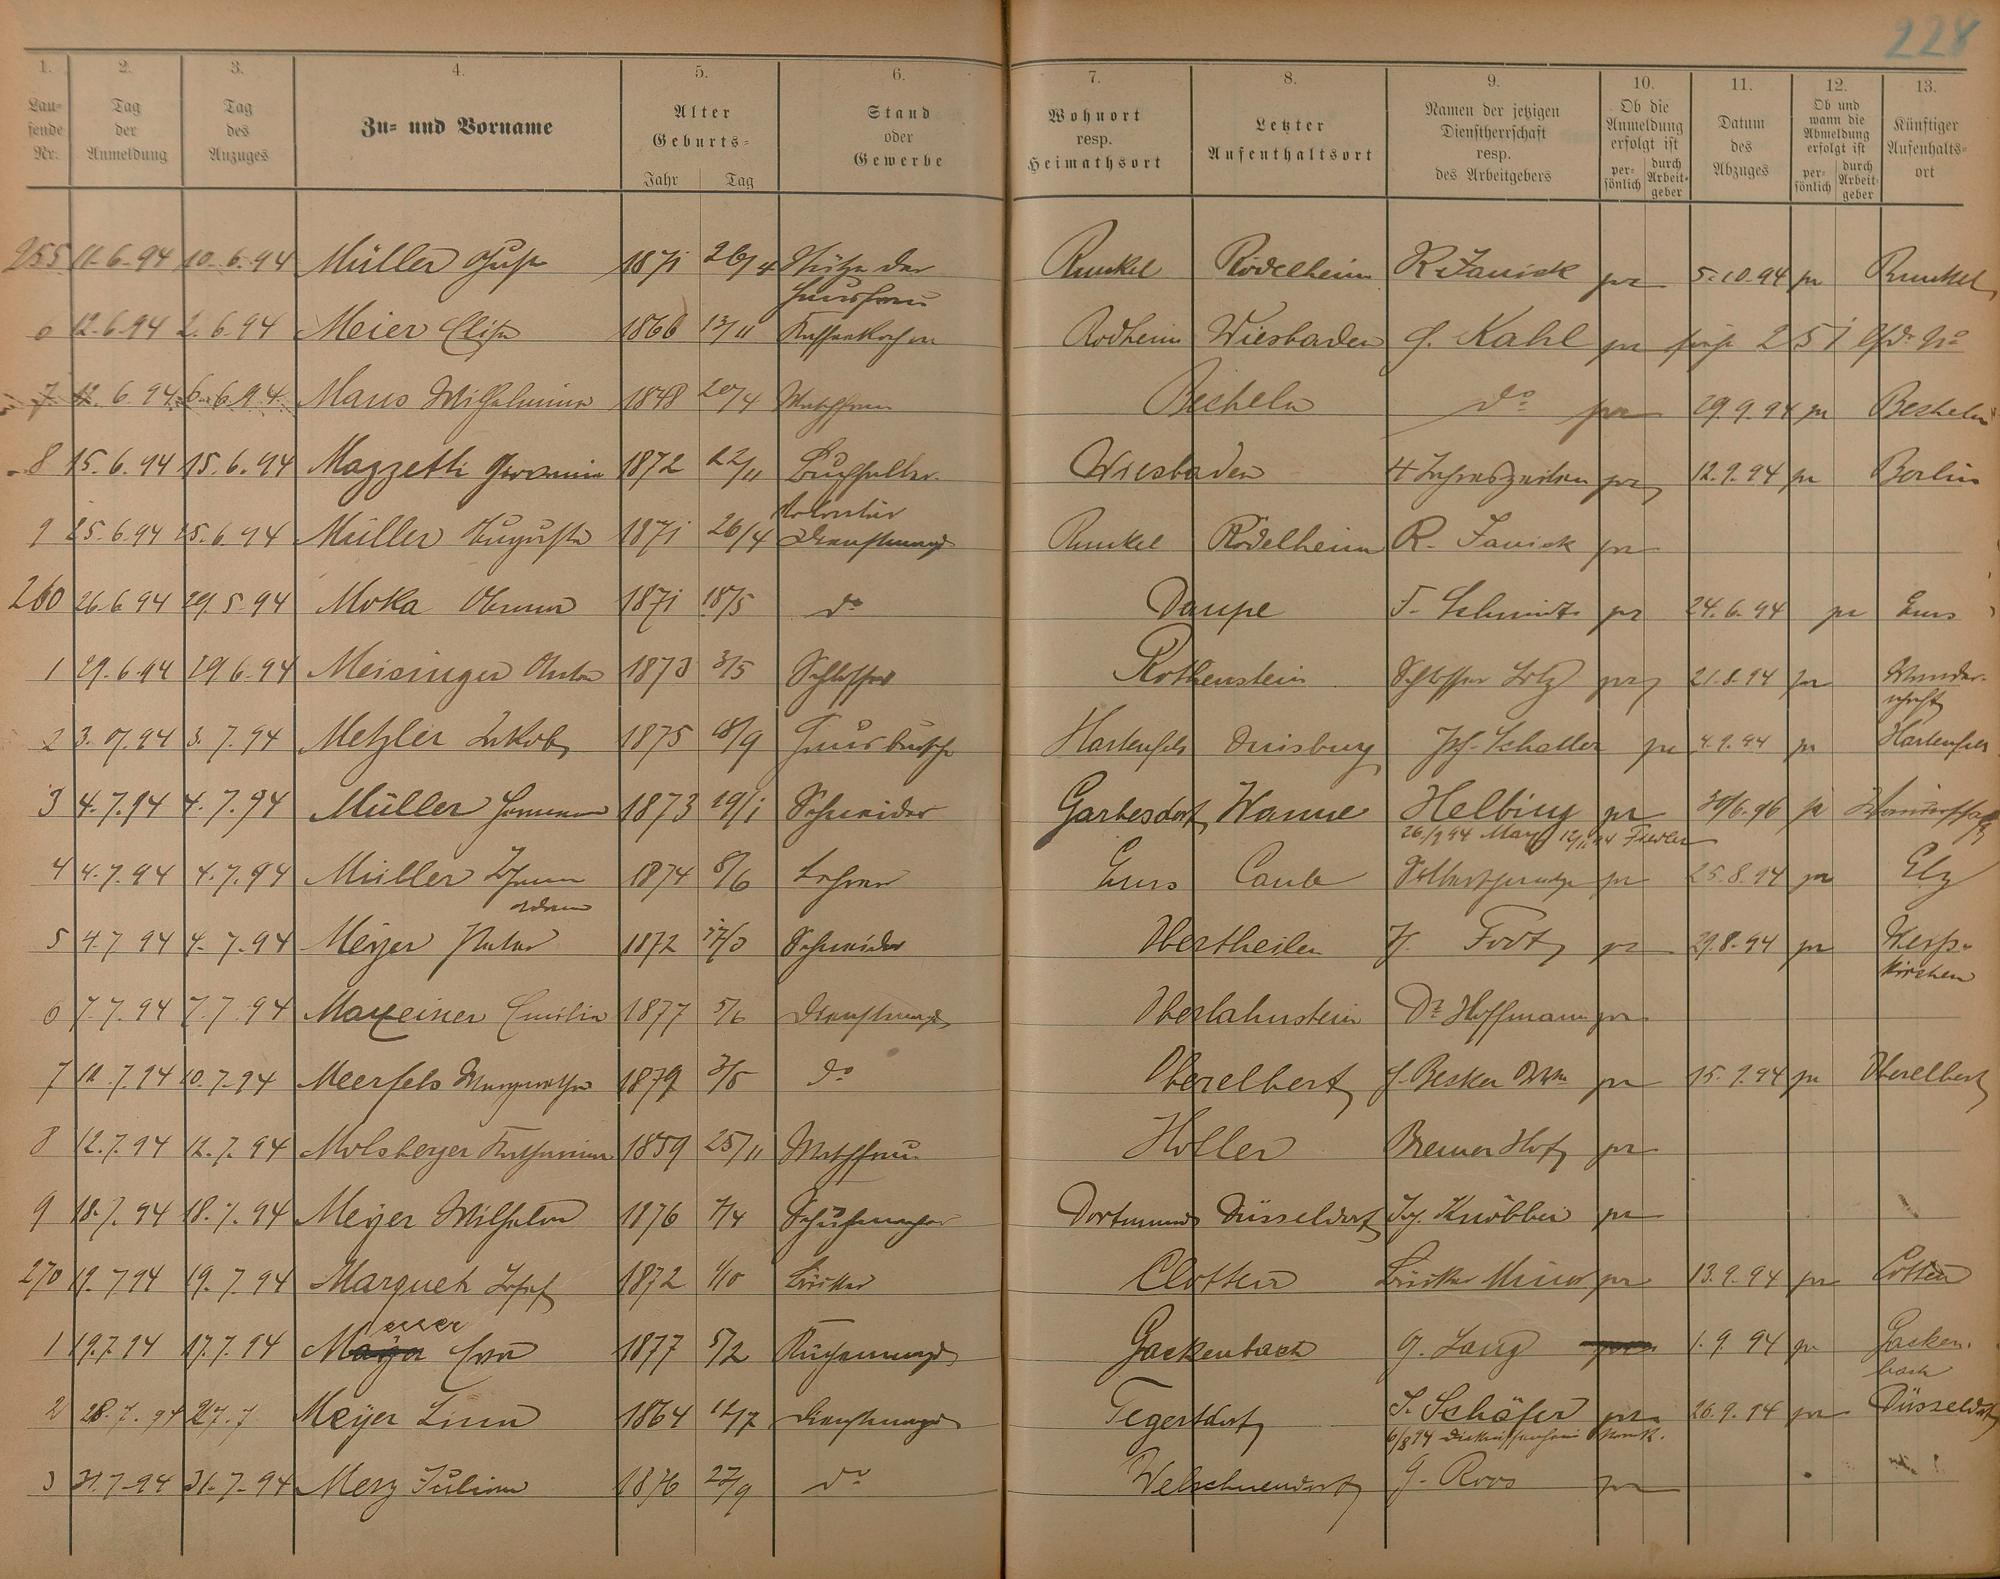 228
1. 2. 3. 4. 5. 6. 7. 8. 9. 10. 11. 12. 13.
Lau-
fende
Nr.
Tag
der
Anmeldung
Tag
des
Anzuges
Zu- und Vorname
Alter
Geburts-
Jahr Tag
Stand
oder
Gewerbe
Wohnort
resp.
Heimathsort
Letzter
Aufenthaltsort
Namen der jetzigen
Dienstherrschaft
resp.
des Arbeitgebers
Ob die
Anmeldung
erfolgt ist
per-
sönlich
durch
Arbeit-
geber
Datum
des
Abzuges
Ob und
wann die
Abmeldung
erfolgt ist
per-
sönlich
durch
Arbeit-
geber
Künftiger
Aufenthalts-
ort
255 11.6.94 10.6.94 Müller 1871 26/4 Stütze der Runkel Rödelheim pr 5.10.94 pr Runkel
Hausfrau
6 12.6.94 2.6.94 Meier Elise 1866 13/11 Kaffeeköchin Rodheim Wiesbaden G. Kahl pr 251 lfd. No
7 12.6.94 6.6.94 Maus Wilhelmine 1848 20/4 Waschfrau Becheln do pr 29.9.94 pr Becheln
8 15.6.94 15.6.94 Mazzetti 1872 22/11 Buchhalter Wiesbaden 4 Jahreszeiten pr 12.9.94 pr Berlin
Volontär
9 25.6.94 25.6.94 Müller Auguste 1871 26/4 Dienstmagd Runkel Rödelheim R. pr
260 26.6.94 29.5.94 Moka 1871 18/5 do F. Schmidt pr 24.6.94 pr Ems
1 29.6.94 29.6.94 Meisinger Anton 1873 3/5 Schlosser Rothenstein Schlosser Lotz pr 21.8.94 pr Wander-
schaft
2 3.7.94 3.7.94 Metzler Jakob 1875 18/9 Hausbursche Hartenfels Duisburg Jos. Schaller pr 4.9.94 pr Hartenfels
3 4.7.94 4.7.94 Müller Hermann 1873 19/1 Schneider Garbesdorf Wanne Helbing pr 30/6.96 pr Wanderschaft
26/9 94 May 12/11 94 Fiedler
4 4.7.94 4.7.94 Müller Johann 1874 8/6 Lehrer Ems Caub pr 25.8.94 pr Elz
Adam
5 4.7.94 4.7.94 Meyer Peter 1872 Schneider Obertheilen pr 29.8.94 pr
kirchen
6 7.7.94 7.7.94 Maxeiner Emilie 1877 5/6 Dienstmagd Oberlahnstein Dr Hoffmann pr
7 11.7.94 10.7.94 Meerfels Margarethe 1879 Do Oberelbert J. Becker pr 15.9.94 pr Oberelbert
8 12.7.94 12.7.94 Molsberger Katharina 1859 25/11 Waschfrau Holler Bremer Hof pr
9 18.7.94 18.7.94 Meyer Wilhelm 1876 7/4 Schuhmacher Dortmund Düsseldorf Jos. Knöbber pr
270 19.7.94 19.7.94 Josef 1872 1/10 Bäcker Clotten Bäcker pr 13.9.94 pr Cotten
esser
1 19.7.94 17.7.94 Mayer Eva 1877 5/2 Küchenmagd Gackenbach G. Lang 1.9.94 pr Gacken-
bach
2 28.7.94 27.7 Meyer Lina 1864 12/7 Dienstmagd Tegertdorf J. Schäfer pr 26.9.94 pr Düsseldorf
6/8 94
3 31.7.94 31.7.94 Merz Juliane 1876 27/9 do Welschneudorf G. Roos pr